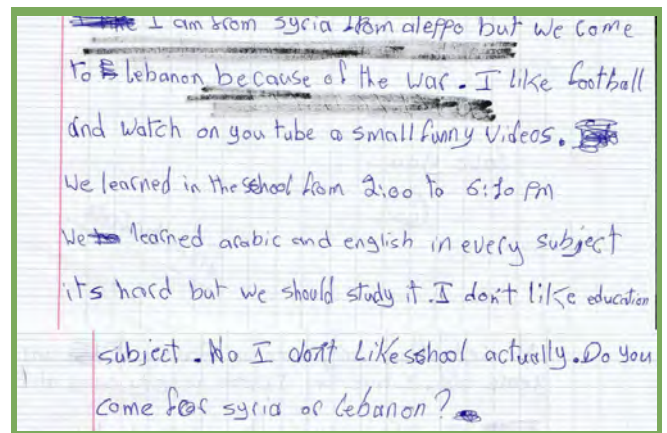 I am from syria from aleppo but we come
to lebanon because of the war. I like football
and watch on you tube a small funny videos.
We learned in the school from 2:00 to 6:10 pm
We learned arabic and english in every subject
its hard but we should study it. I don't like education
subject. No I don't Like school actually. Do you
come for syria or lebanon?